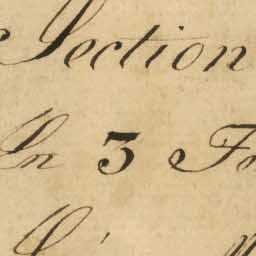 Section
In 3 Fo